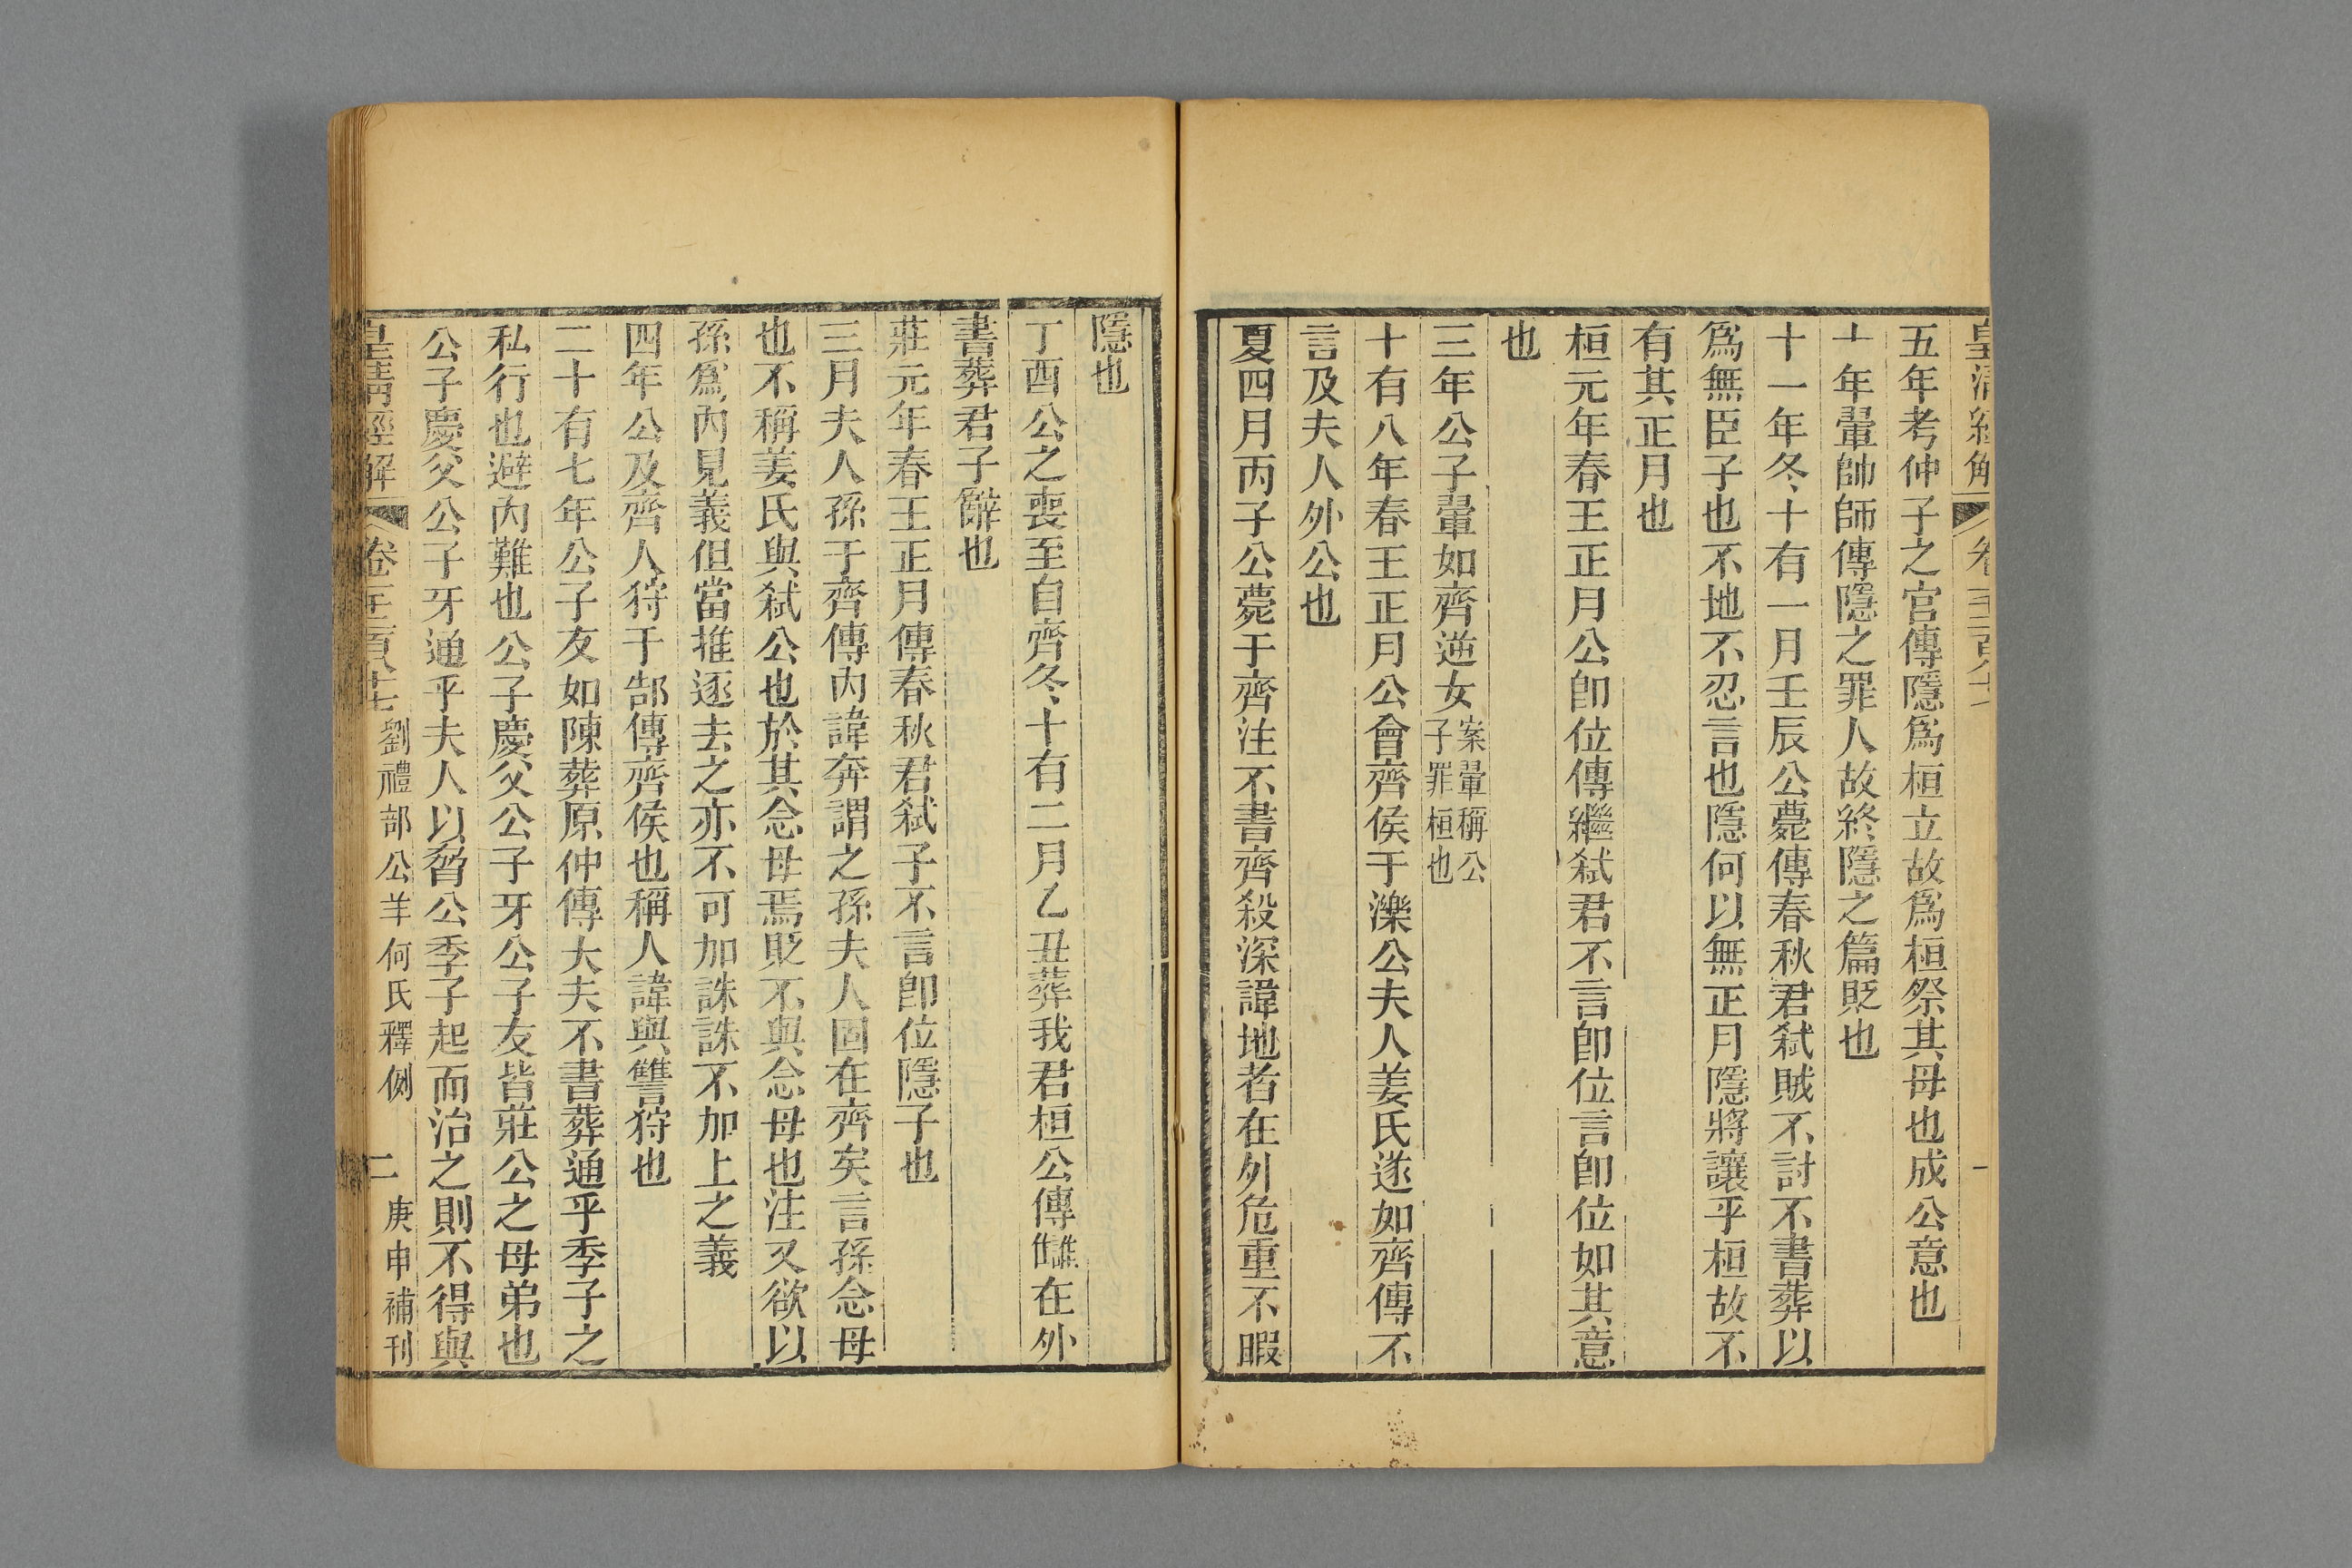 皇清經解 卷千二百八十 一
五年考仲子之宮傳隱爲桓立故爲桓祭其母也成公意也
十年翬帥師傳隱之罪人故終隱之篇貶也
十一年冬十有一月壬辰公薨傳春秋君弑賊不討不書葬以
爲無臣子也不地不忍言也隱何以無正月隱將讓乎桓故不
有其正月也
桓元年春王正月公卽位傳繼弑君不言卽位言卽位如其意
也
三年公子翬如齊逆女案翬稱公子罪桓也
十有八年春王正月公會齊侯于濼公夫人姜氏遂如齊傳不
言及夫人外公也
夏四月丙子公薨于齊注不書齊殺深諱地者在外危重不暇
隱也
丁酉公之喪至自齊冬十有二月乙丑葬我君桓公傳讎在外
書葬君子辭也
莊元年春王正月傳春秋君弑子不言卽位隱子也
三月夫人孫于齊傳內諱奔謂之孫夫人固在齊矣言孫念母
也不稱姜氏與弑公也於其念母焉貶不與念母也注又欲以
孫爲內見義但當推逐去之亦不可加誅誅不加上之義
四年公及齊人狩于郜傳齊侯也稱人諱與讐狩也
二十有七年公子友如陳葬原仲傳大夫不書葬通乎季子之
私行也避內難也公子慶父公子牙公子友皆莊公之母弟也
公子慶父公子牙通乎夫人以脅公季子起而治之則不得與
皇淸經解 卷千二百八十 劉禮部公羊何氏釋例 二 庚申補刊